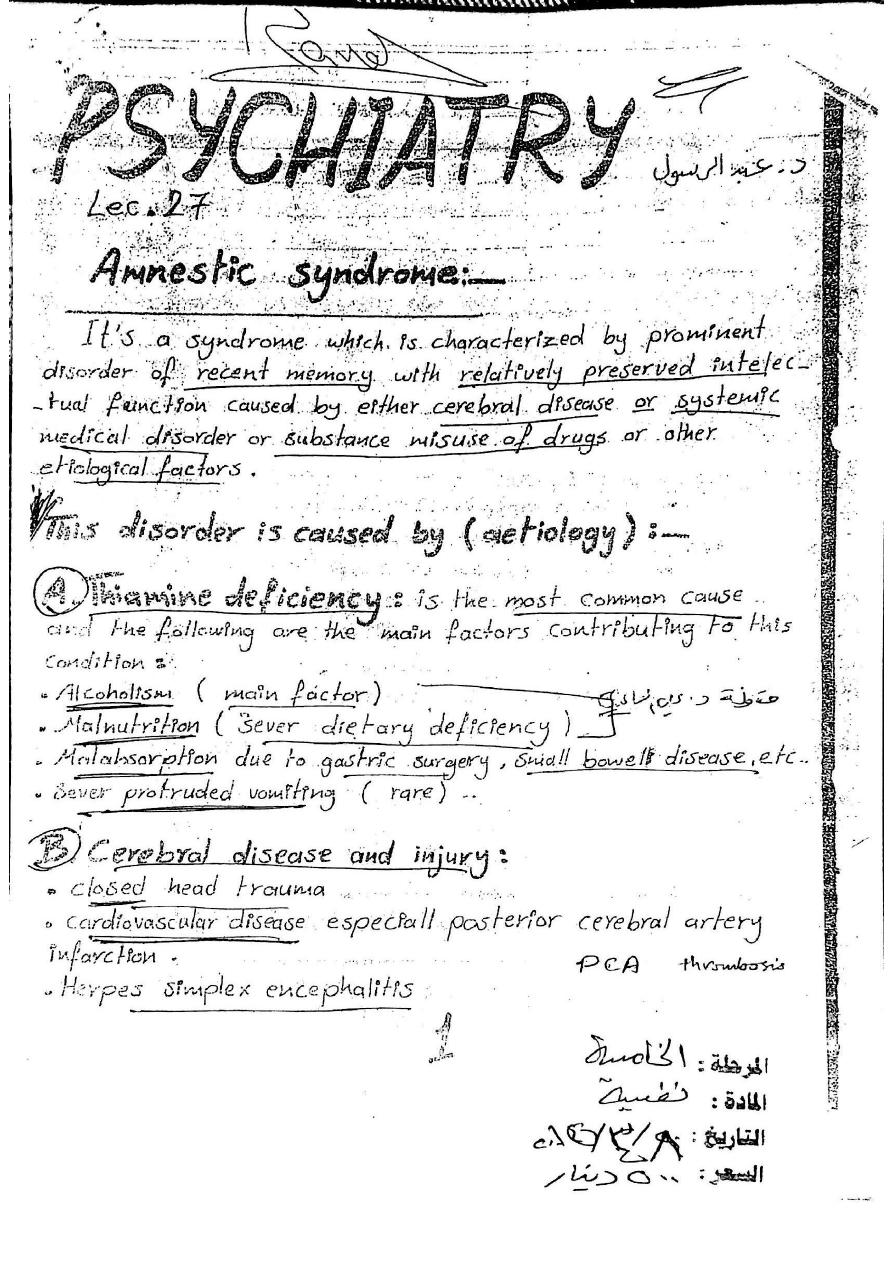 PSYCHIATRY
د. عبد الرسول
Lec. 27
Amnestic syndrome:-
It's a syndrome which is characterized by prominent
disorder of recent memory with relatively preserved intelec-
-tual function caused by either cerebral disease or systemic
medical disorder or substance misuse of drugs or other
etiological factors.
This disorder is caused by (aetiology) :-
A. Thiamine deficiency: is the most common cause
and the following are the main factors contributing to this
condition :
• Alcoholism ( main factor)
• Malnutrition ( sever dietary deficiency )
• Malabsorption due to gastric surgery, small bowell disease, etc..
• Sever protruded vomiting ( rare) ..
B Cerebral disease and injury:
• closed head trauma
• cardiovascular disease especiall posterior cerebral artery
infarction .
PCA thrombosis
• Herpes simplex encephalitis
1
المرحلة : الخامسة
المادة : نفسية
التاريخ :
السعر : ٥٠٠ دينار